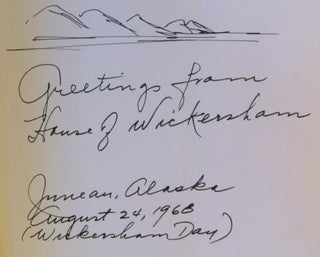 Greetings from
House of Wickersham
Juneau, Alaska
August 24, 1968
(Wickersham Day)